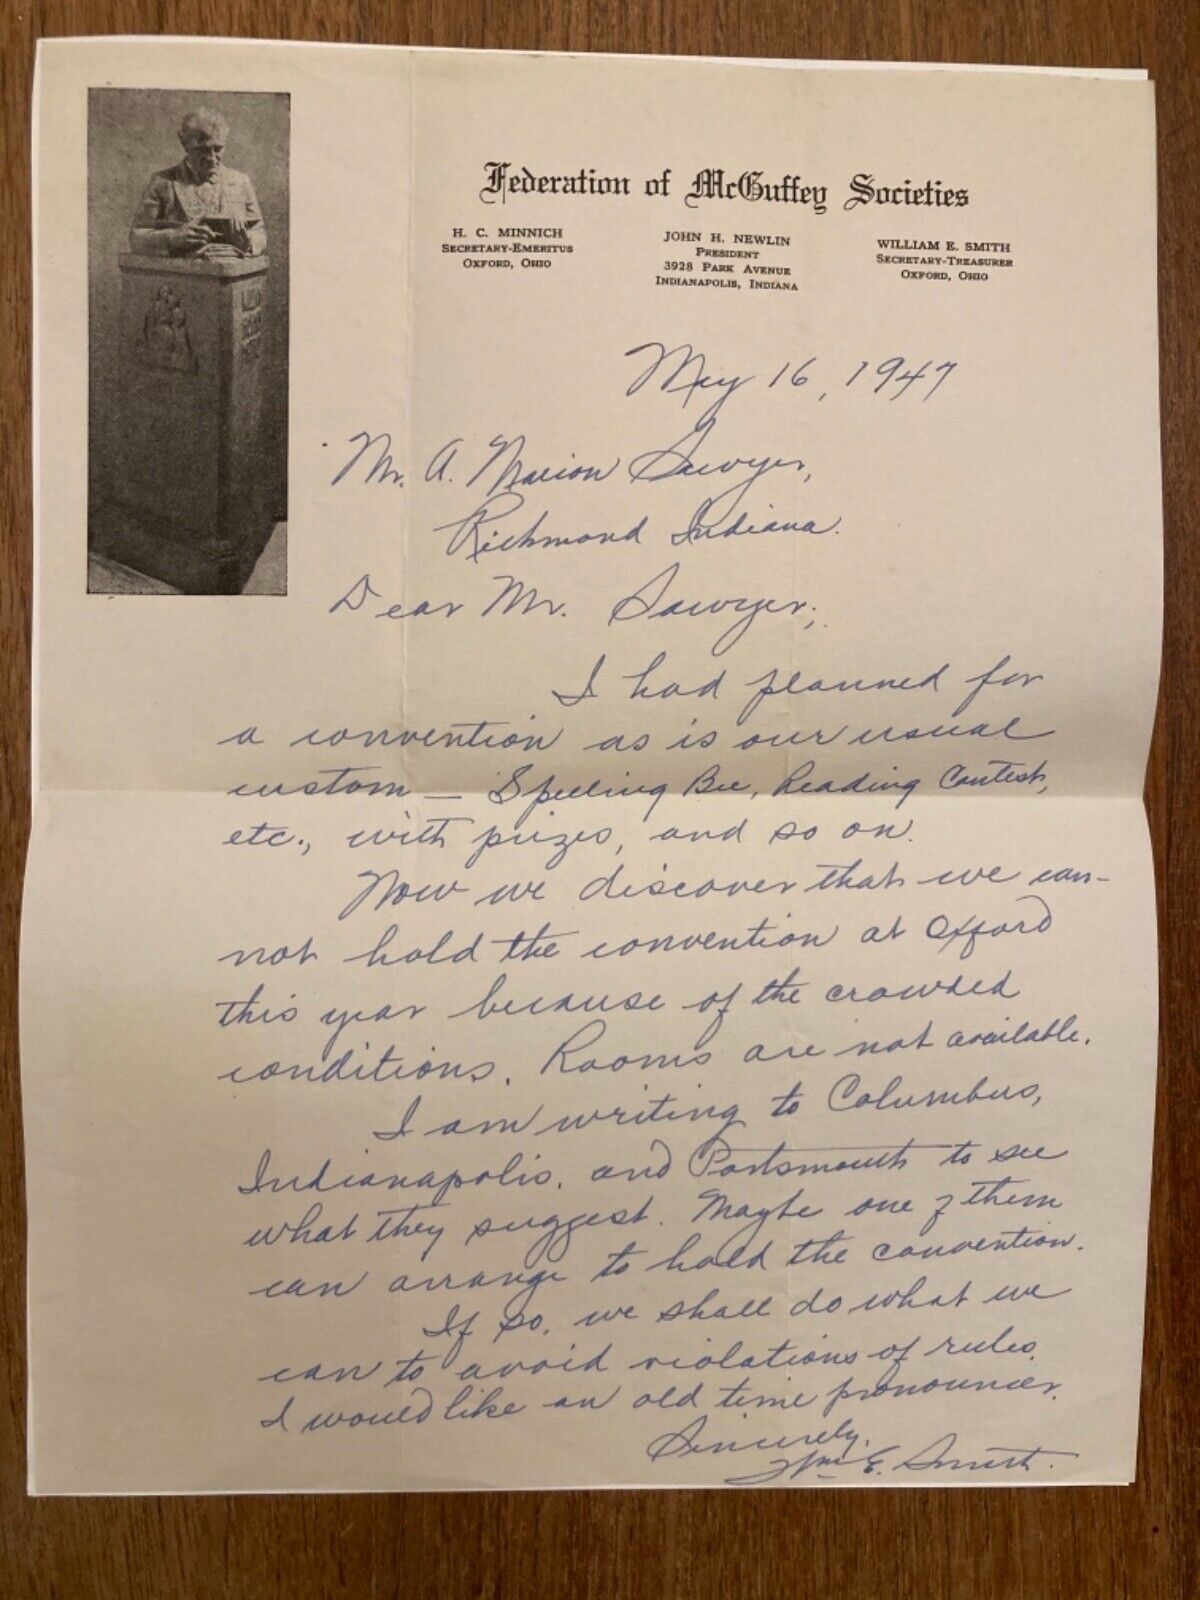 Federation of McGuffey Societies
H. C. MINNICH
SECRETARY-EMERITUS
OXFORD, OHIO
JOHN H. NEWLIN
PRESIDENT
3928 PARK AVENUE
INDIANAPOLIS, INDIANA
WILLIAM E. SMITH
SECRETARY-TREASURER
OXFORD, OHIO
May 16, 1947
Mr. A. Marion Sawyer,
Richmond Indiana.
Dear Mr. Sawyer;
I had planned for
a convention as is our usual
custom – Spelling Bee, Reading Contest,
etc., with prizes, and so on.
Now we discover that we can-
not hold the convention at Oxford
this year because of the crowded
conditions. Rooms are not available.
I am writing to Columbus,
Indianapolis, and Portsmouth to see
what they suggest. Maybe one of them
can arrange to hold the convention.
If so, we shall do what we
can to avoid violations of rules.
I would like an old time pronouncer.
Sincerely,
Wm E. Smith.